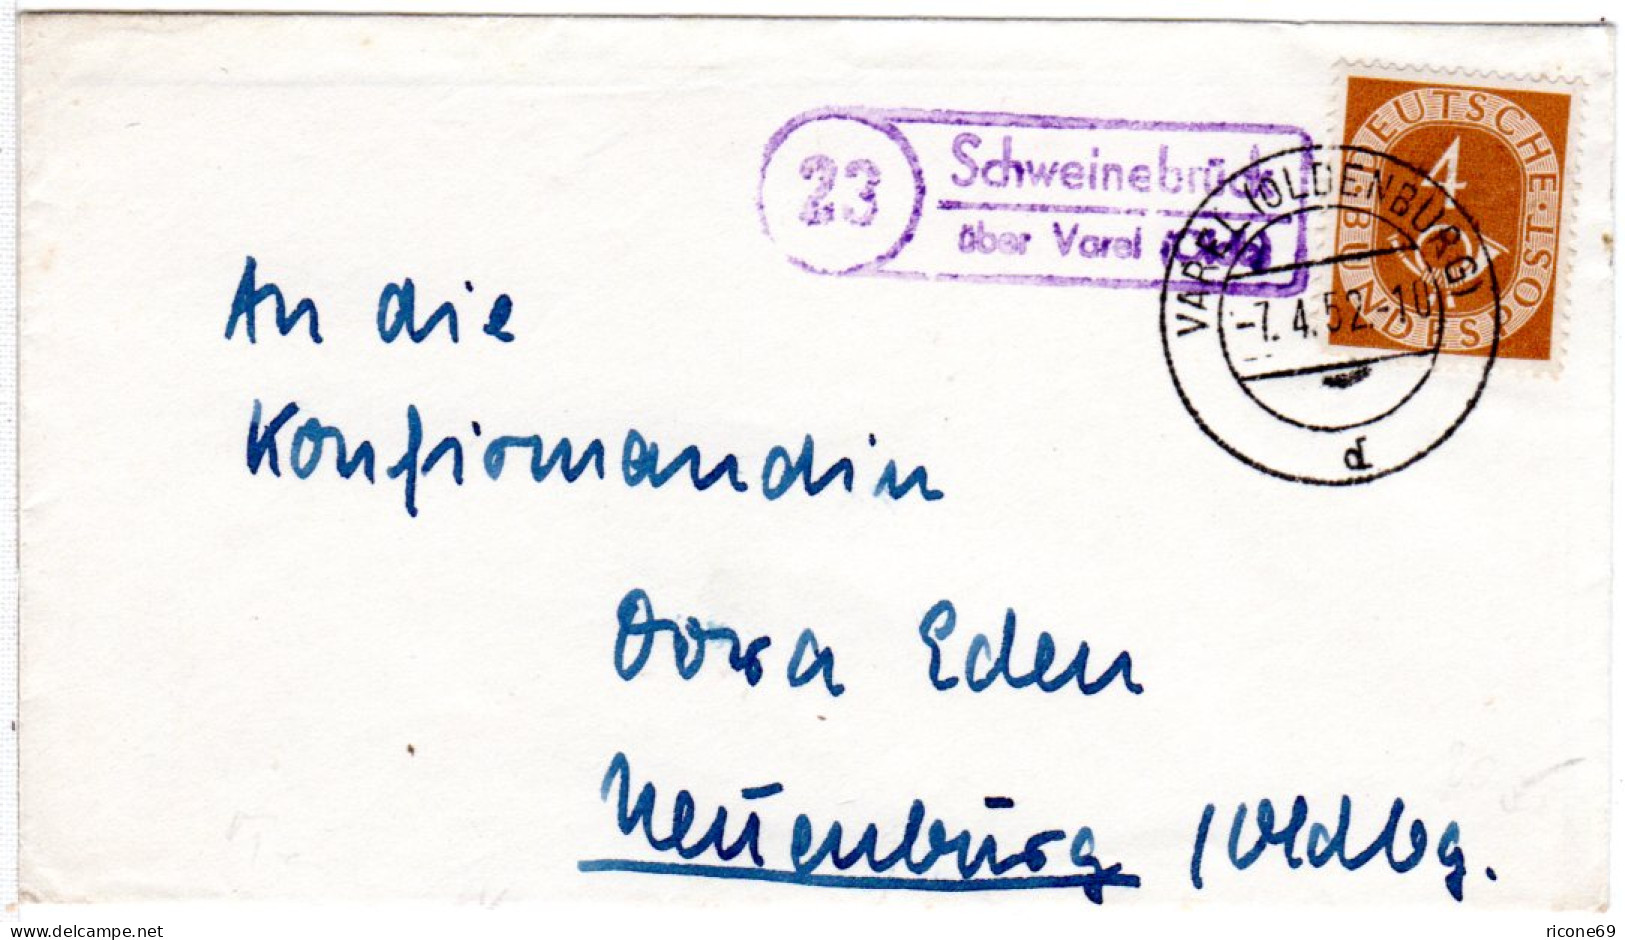 23
Schweinebrück
über Varel (Oldb)
DEUTSCHE · POST
BUNDESPOST
4
VAREL (OLDENBURG)
-7. 4. 52.-10
d
An die
Konfirmandin
Dora Eden
Neuenburg /Oldbg.
www.delcampe.net
ricone69